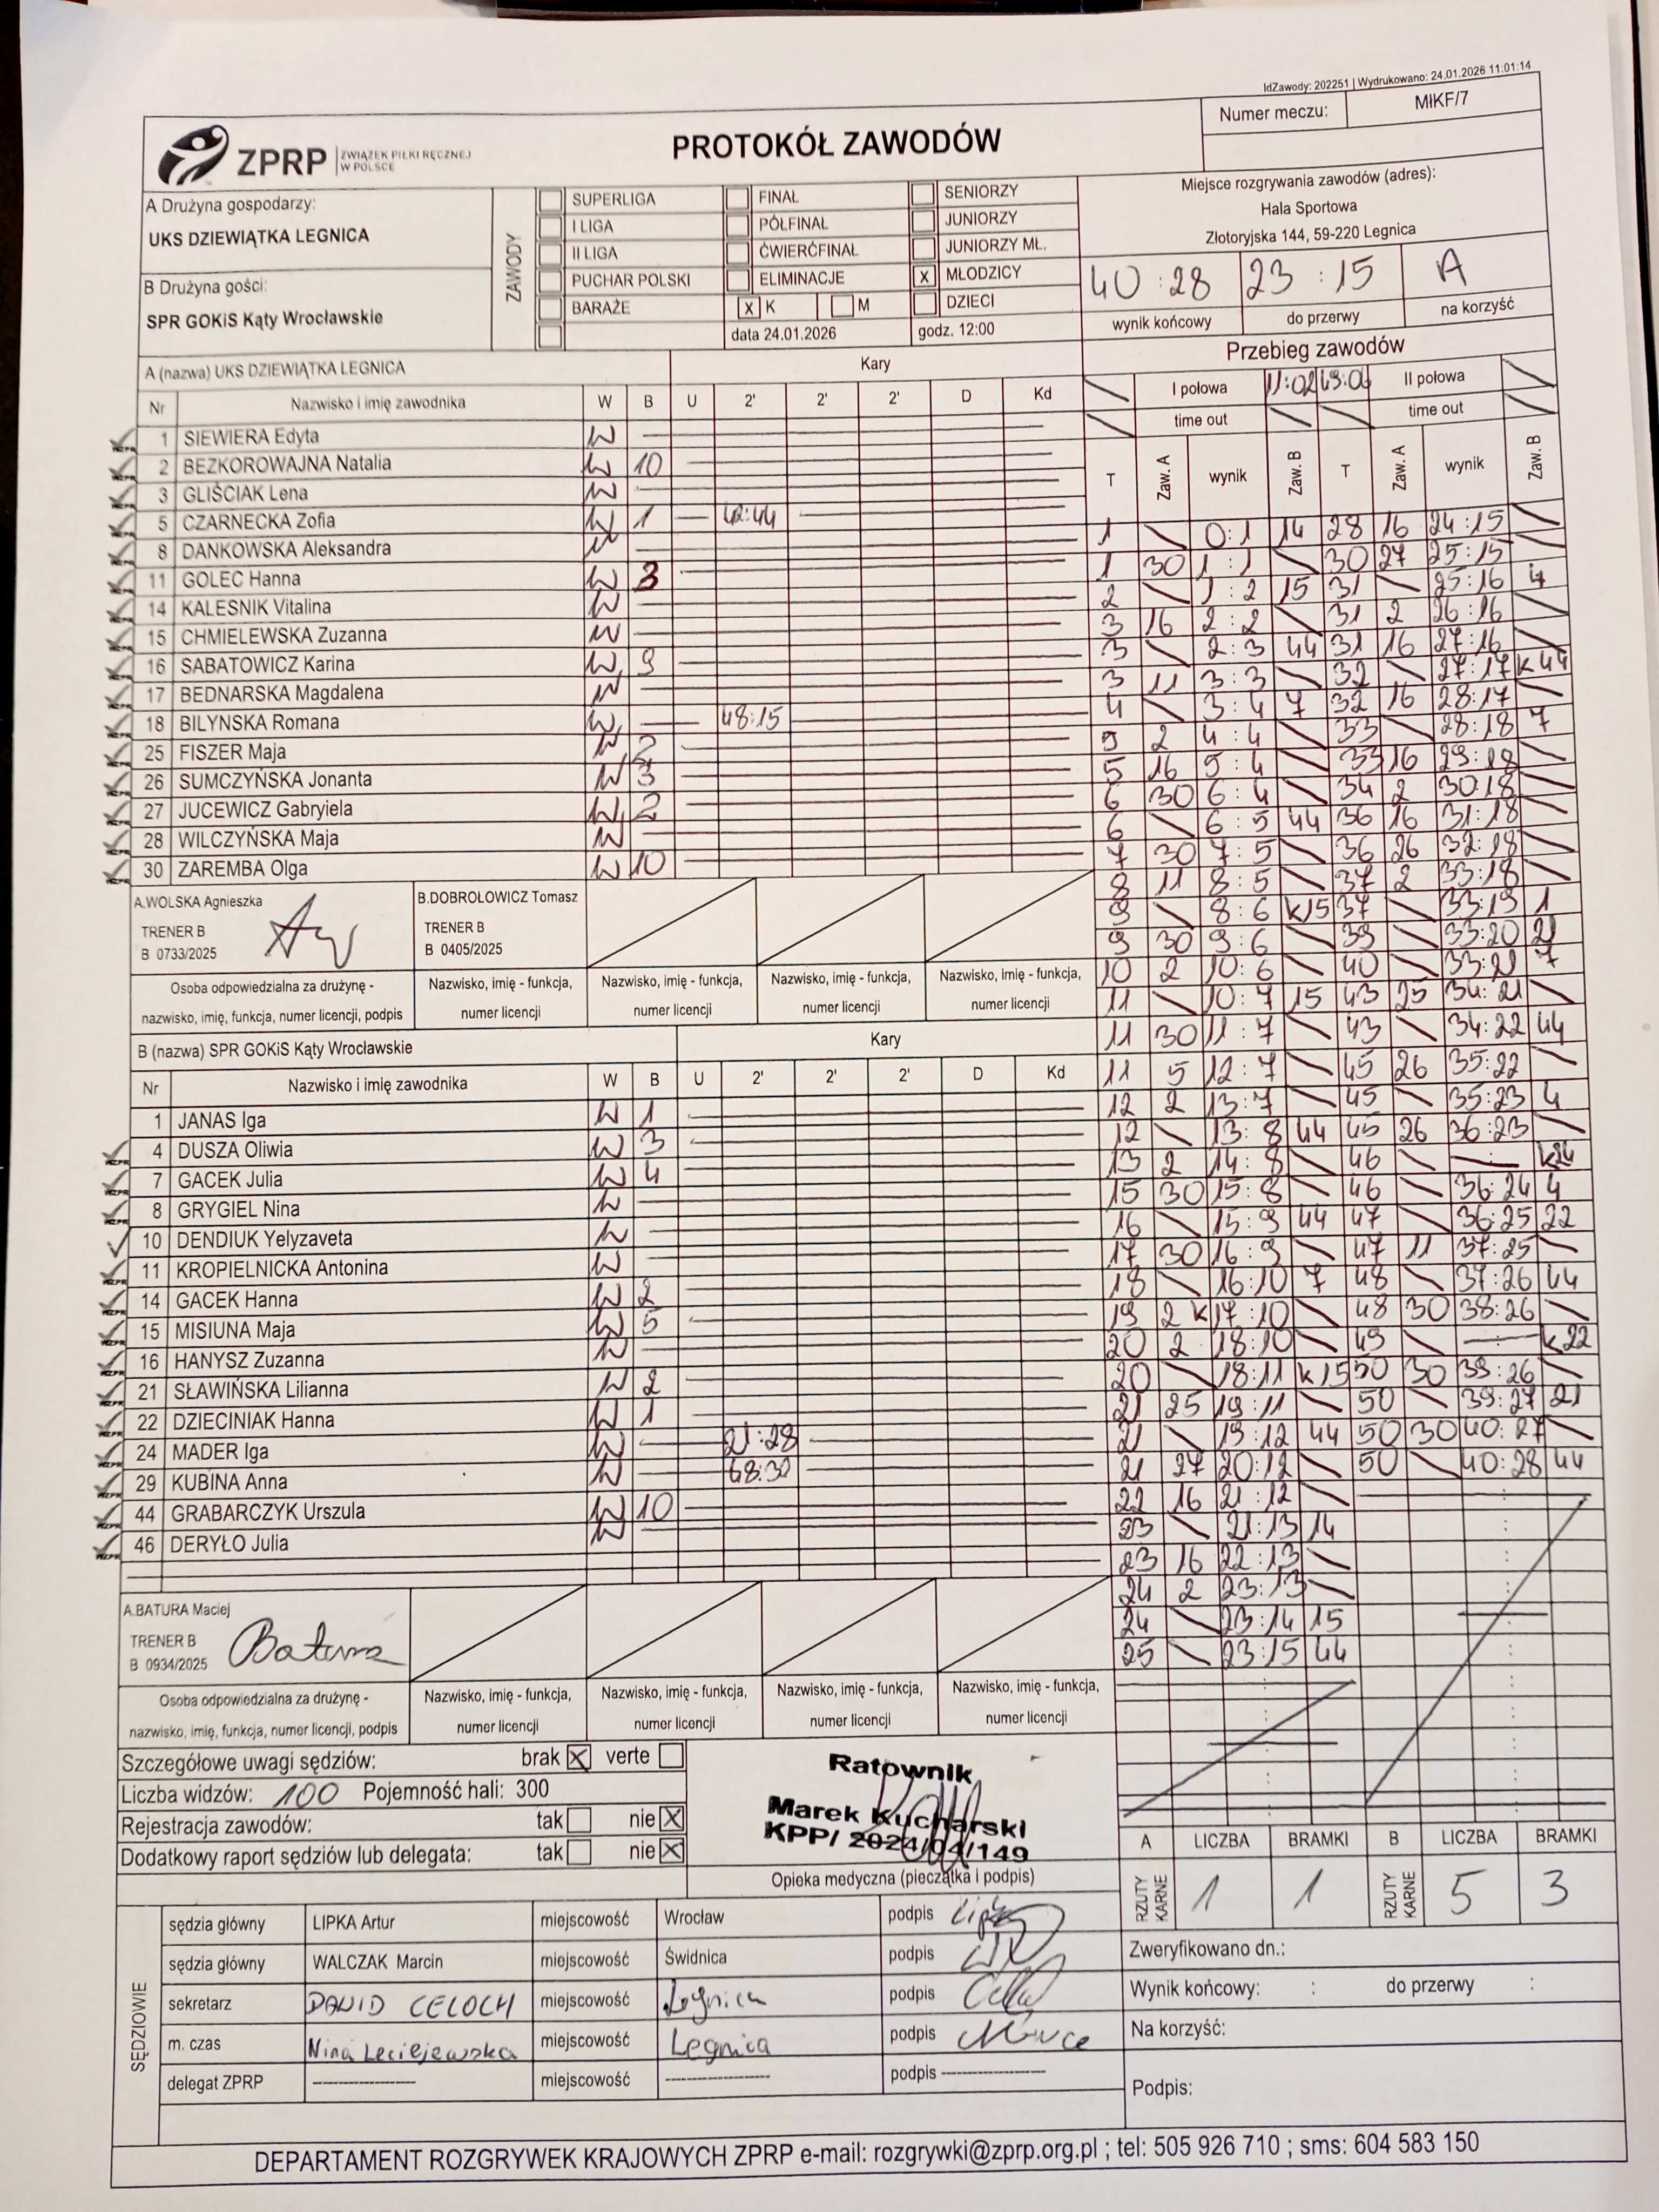 IdZawody: 202251 | Wydrukowano: 24.01.2026 11:01:14
Numer meczu: MłKF/7
ZPRP ZWIĄZEK PIŁKI RĘCZNEJ W POLSCE
PROTOKÓŁ ZAWODÓW
A Drużyna gospodarzy:
UKS DZIEWIĄTKA LEGNICA
B Drużyna gości:
SPR GOKiS Kąty Wrocławskie
ZAWODY
SUPERLIGA FINAŁ SENIORZY
I LIGA PÓŁFINAŁ JUNIORZY
II LIGA ĆWIERĆFINAŁ JUNIORZY MŁ.
PUCHAR POLSKI ELIMINACJE x MŁODZICY
BARAŻE x K M DZIECI
data 24.01.2026 godz. 12:00
Miejsce rozgrywania zawodów (adres):
Hala Sportowa
Złotoryjska 144, 59-220 Legnica
40:28 23:15 A
wynik końcowy do przerwy na korzyść
A (nazwa) UKS DZIEWIĄTKA LEGNICA Kary
Nr Nazwisko i imię zawodnika W B U 2' 2' 2' D Kd
1 SIEWIERA Edyta W
2 BEZKOROWAJNA Natalia W 10
3 GLIŚCIAK Lena W
5 CZARNECKA Zofia W 1 42:44
8 DANKOWSKA Aleksandra W
11 GOLEC Hanna W 3
14 KALESNIK Vitalina W
15 CHMIELEWSKA Zuzanna W
16 SABATOWICZ Karina W 9
17 BEDNARSKA Magdalena W
18 BILYNSKA Romana W 48:15
25 FISZER Maja W 2
26 SUMCZYŃSKA Jonanta W 3
27 JUCEWICZ Gabryiela W 2
28 WILCZYŃSKA Maja W
30 ZAREMBA Olga W 10
A.WOLSKA Agnieszka
TRENER B
B 0733/2025
B.DOBROŁOWICZ Tomasz
TRENER B
B 0405/2025
Osoba odpowiedzialna za drużynę -
nazwisko, imię, funkcja, numer licencji, podpis
Nazwisko, imię - funkcja, numer licencji
Nazwisko, imię - funkcja, numer licencji
Nazwisko, imię - funkcja, numer licencji
Nazwisko, imię - funkcja, numer licencji
B (nazwa) SPR GOKiS Kąty Wrocławskie Kary
Nr Nazwisko i imię zawodnika W B U 2' 2' 2' D Kd
1 JANAS Iga W 1
4 DUSZA Oliwia W 3
7 GACEK Julia W 4
8 GRYGIEL Nina W
10 DENDIUK Yelyzaveta W
11 KROPIELNICKA Antonina W
14 GACEK Hanna W 2
15 MISIUNA Maja W 5
16 HANYSZ Zuzanna W
21 SŁAWIŃSKA Lilianna W 2
22 DZIECINIAK Hanna W 1
24 MADER Iga W 21:28
29 KUBINA Anna W 48:30
44 GRABARCZYK Urszula W 10
46 DERYŁO Julia W
A.BATURA Maciej
TRENER B
B 0934/2025
Batura
Osoba odpowiedzialna za drużynę -
nazwisko, imię, funkcja, numer licencji, podpis
Nazwisko, imię - funkcja, numer licencji
Nazwisko, imię - funkcja, numer licencji
Nazwisko, imię - funkcja, numer licencji
Nazwisko, imię - funkcja, numer licencji
Przebieg zawodów
I połowa 11:02 II połowa
time out time out
T Zaw. A wynik Zaw. B T Zaw. A wynik Zaw. B
1 0:1 14 28 16 24:15
1 30 1:1 30 27 25:15
2 1:2 15 31 25:16 4
3 16 2:2 31 2 26:16
3 2:3 44 31 16 27:16
3 11 3:3 32 27:17 k44
4 3:4 7 32 16 28:17
5 2 4:4 33 28:18 7
5 16 5:4 33 16 29:18
6 30 6:4 34 2 30:18
6 6:5 44 36 16 31:18
7 30 7:5 36 26 32:18
8 11 8:5 37 2 33:18
9 8:6 k15 37 33:19 1
9 30 9:6 39 33:20 21
10 2 10:6 40 33:21 7
11 10:7 15 43 25 34:21
11 30 11:7 43 34:22 44
11 5 12:7 45 26 35:22
12 2 13:7 45 35:23 4
12 13:8 44 45 26 36:23
13 2 14:8 46 k24
15 30 15:8 46 36:24 4
16 15:9 44 47 36:25 22
17 30 16:9 47 11 37:25
18 16:10 7 48 37:26 44
19 2 k17:10 48 30 38:26
20 2 18:10 49 k22
20 18:11 k15 50 30 39:26
21 25 19:11 50 39:27 21
21 19:12 44 50 30 40:27
21 27 20:12 50 40:28 44
22 16 21:12
23 21:13 14
23 16 22:13
24 2 23:13
24 23:14 15
25 23:15 44
Szczegółowe uwagi sędziów: brak X verte
Liczba widzów: 100 Pojemność hali: 300
Rejestracja zawodów: tak nie X
Dodatkowy raport sędziów lub delegata: tak nie X
Ratownik
Marek Kucharski
KPP/ 2024/04/149
Opieka medyczna (pieczątka i podpis)
A LICZBA BRAMKI B LICZBA BRAMKI
RZUTY KARNE 1 1 RZUTY KARNE 5 3
SĘDZIOWIE
sędzia główny LIPKA Artur miejscowość Wrocław podpis
sędzia główny WALCZAK Marcin miejscowość Świdnica podpis
sekretarz DAWID CELOCH miejscowość Legnica podpis
m. czas Nina Leciejewska miejscowość Legnica podpis
delegat ZPRP ---------- miejscowość ---------- podpis ----------
Zweryfikowano dn.:
Wynik końcowy: : do przerwy :
Na korzyść:
Podpis:
DEPARTAMENT ROZGRYWEK KRAJOWYCH ZPRP e-mail: rozgrywki@zprp.org.pl ; tel: 505 926 710 ; sms: 604 583 150